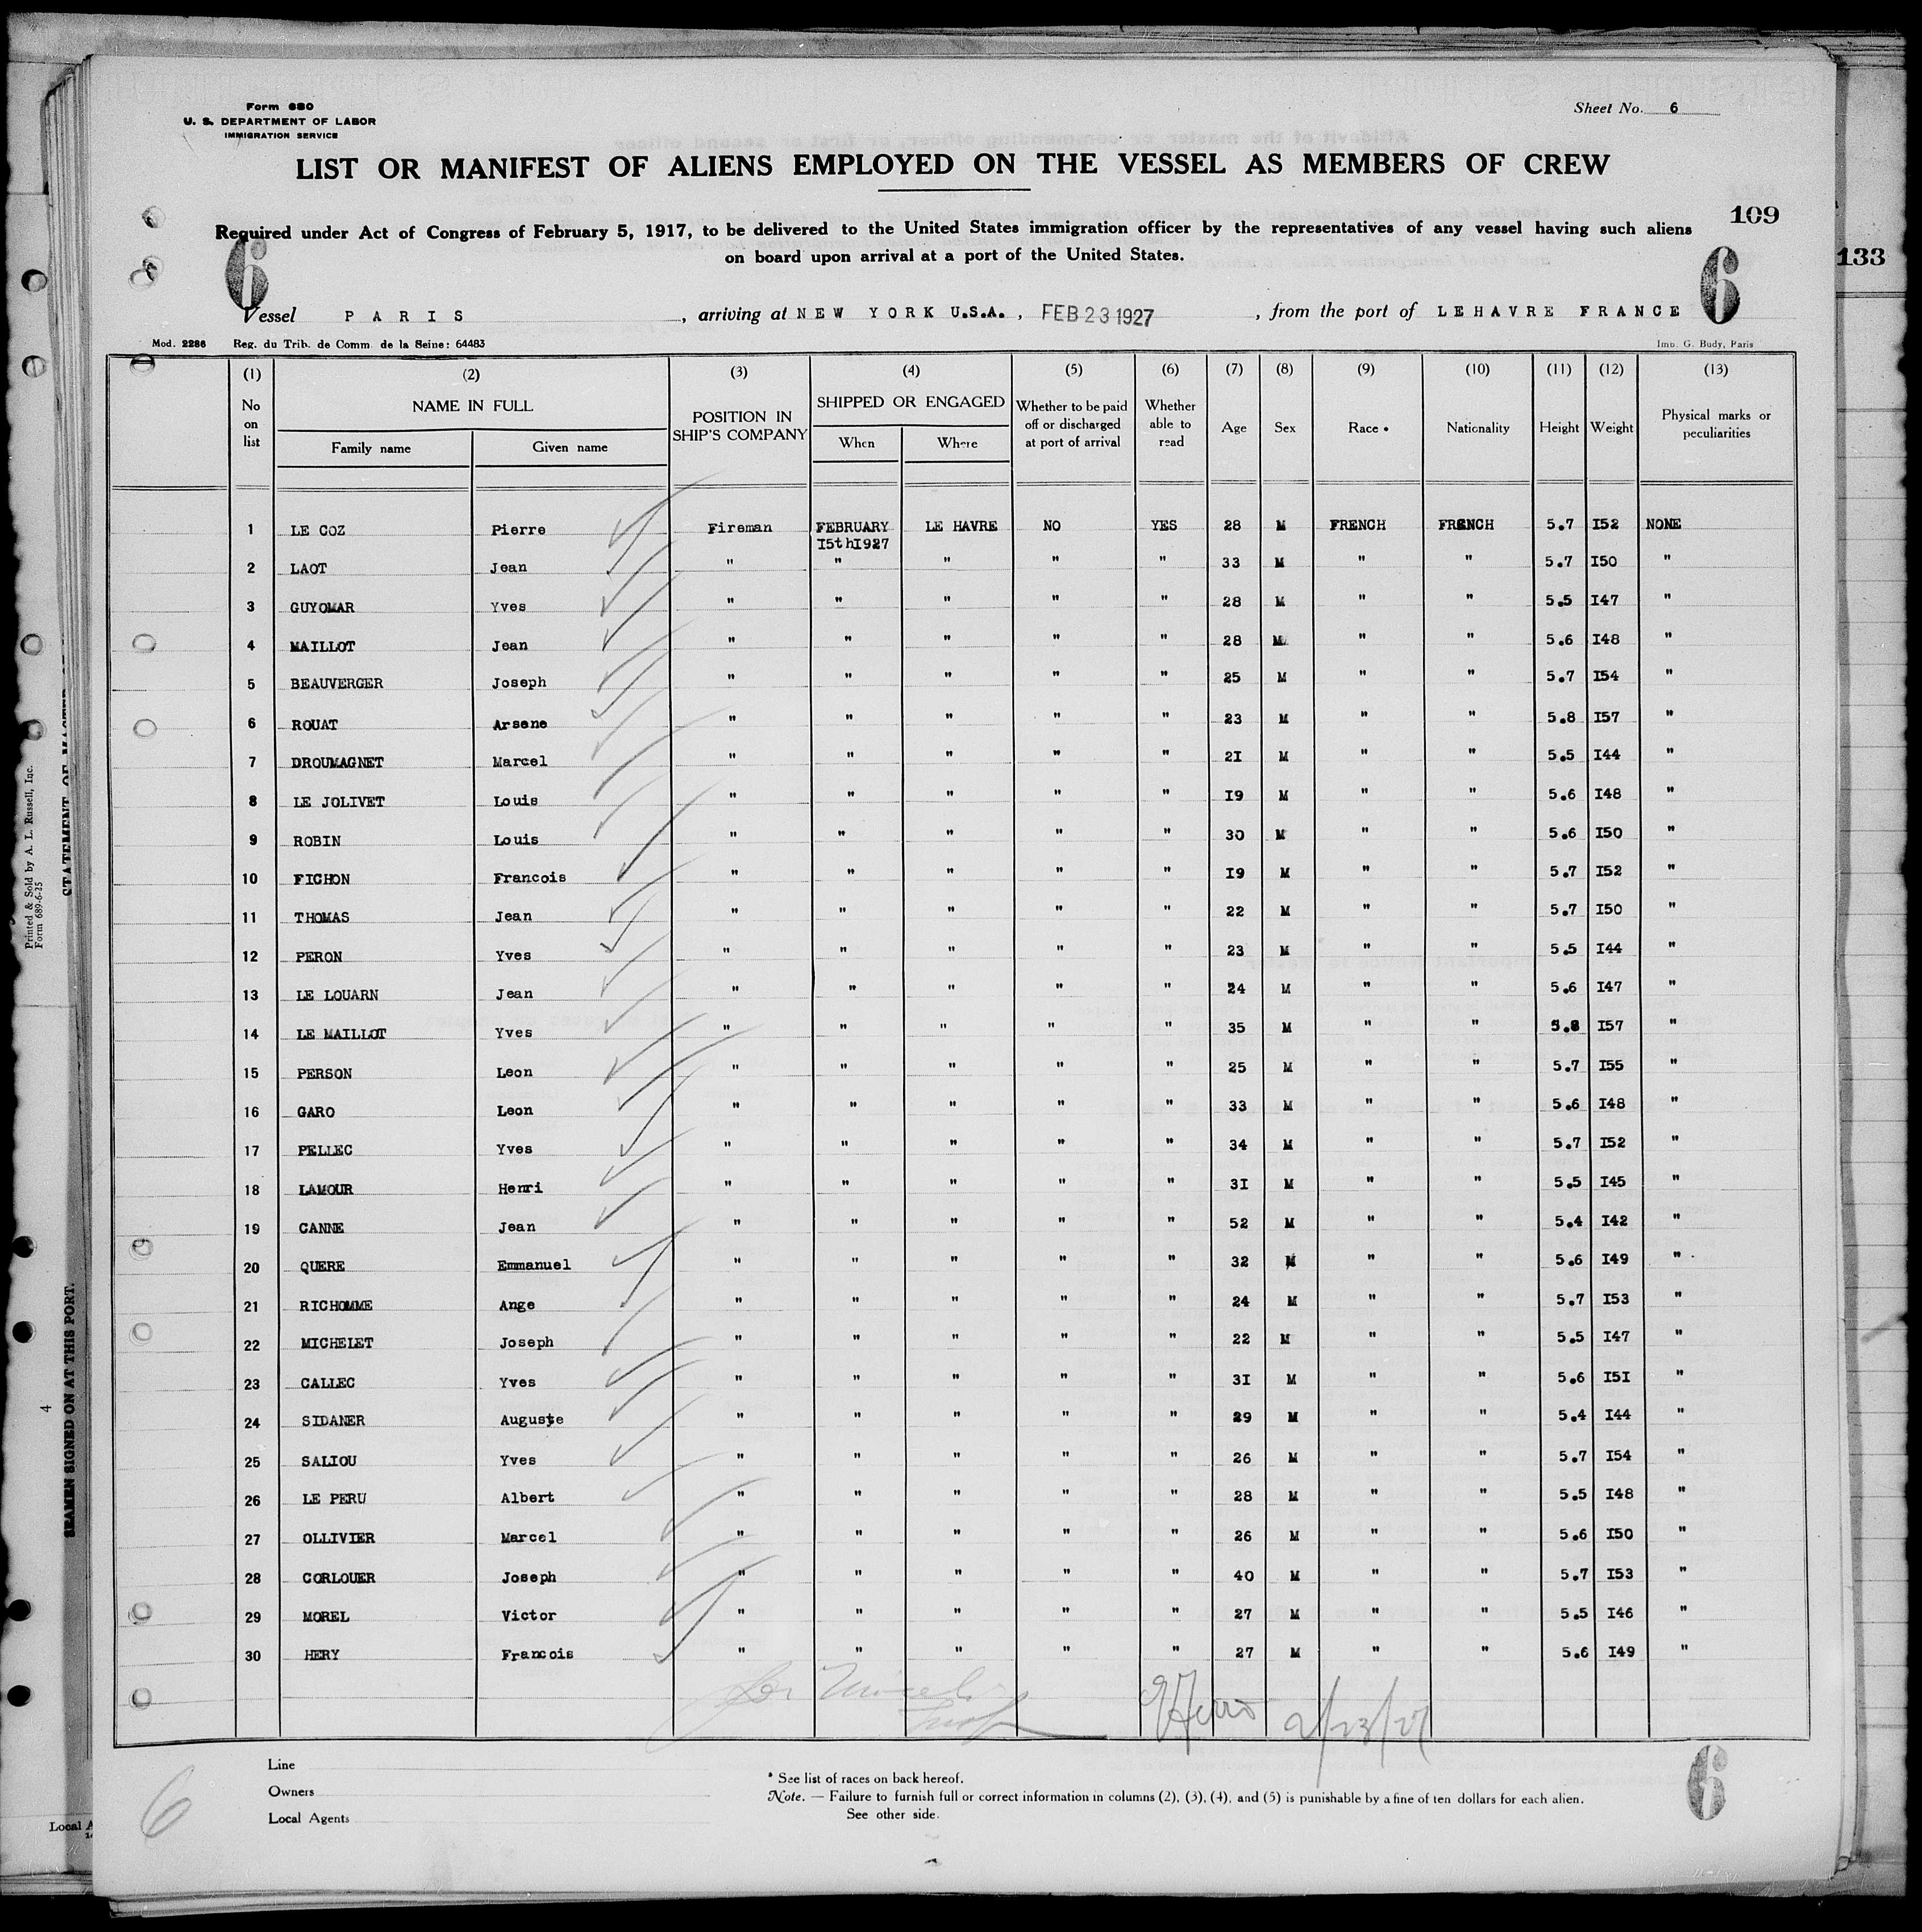 Form 680
U. S. DEPARTMENT OF LABOR
IMMIGRATION SERVICE
Sheet No. 6
LIST OR MANIFEST OF ALIENS EMPLOYED ON THE VESSEL AS MEMBERS OF CREW
109
133
Required under Act of Congress of February 5, 1917, to be delivered to the United States immigration officer by the representatives of any vessel having such aliens
on board upon arrival at a port of the United States.
6 6
Vessel PARIS, arriving at NEW YORK U.S.A., FEB 23 1927, from the port of LEHAVRE FRANCE
Mod. 2286 Reg. du Trib. de Comm. de la Seine: 64483 Imp. G. Budy, Paris
(1) No on list (2) NAME IN FULL Family name Given name (3) POSITION IN SHIP'S COMPANY (4) SHIPPED OR ENGAGED When Where (5) Whether to be paid off or discharged at port of arrival (6) Whether able to read (7) Age (8) Sex (9) Race * (10) Nationality (11) Height (12) Weight (13) Physical marks or peculiarities
1 LE COZ Pierre Fireman FEBRUARY I5thI927 LE HAVRE NO YES 28 M FRENCH FRENCH 5.7 I52 NONE
2 LAOT Jean " " " " " 33 M " " 5.7 I50 "
3 GUYOMAR Yves " " " " " 28 M " " 5.5 I47 "
4 MAILLOT Jean " " " " " 28 M " " 5.6 I48 "
5 BEAUVERGER Joseph " " " " " 25 M " " 5.7 I54 "
6 ROUAT Arsene " " " " " 23 M " " 5.8 I57 "
7 DROUMAGNET Marcel " " " " " 2I M " " 5.5 I44 "
8 LE JOLIVET Louis " " " " " I9 M " " 5.6 I48 "
9 ROBIN Louis " " " " " 30 M " " 5.6 I50 "
10 FICHON Francois " " " " " I9 M " " 5.7 I52 "
11 THOMAS Jean " " " " " 22 M " " 5.7 I50 "
12 PERON Yves " " " " " 23 M " " 5.5 I44 "
13 LE LOUARN Jean " " " " " 24 M " " 5.6 I47 "
14 LE MAILLOT Yves " " " " " 35 M " " 5.8 I57 "
15 PERSON Leon " " " " " 25 M " " 5.7 I55 "
16 GARO Leon " " " " " 33 M " " 5.6 I48 "
17 PELLEC Yves " " " " " 34 M " " 5.7 I52 "
18 LAMOUR Henri " " " " " 3I M " " 5.5 I45 "
19 CANNE Jean " " " " " 52 M " " 5.4 I42 "
20 QUERE Emmanuel " " " " " 32 M " " 5.6 I49 "
21 RICHOMME Ange " " " " " 24 M " " 5.7 I53 "
22 MICHELET Joseph " " " " " 22 M " " 5.5 I47 "
23 CALLEC Yves " " " " " 3I M " " 5.6 I5I "
24 SIDANER Auguste " " " " " 29 M " " 5.4 I44 "
25 SALIOU Yves " " " " " 26 M " " 5.7 I54 "
26 LE PERU Albert " " " " " 28 M " " 5.5 I48 "
27 OLLIVIER Marcel " " " " " 26 M " " 5.6 I50 "
28 CORLOUER Joseph " " " " " 40 M " " 5.7 I53 "
29 MOREL Victor " " " " " 27 M " " 5.5 I46 "
30 HERY Francois " " " " " 27 M " " 5.6 I49 "
2/23/27
Line
Owners
Local Agents
* See list of races on back hereof.
Note. — Failure to furnish full or correct information in columns (2), (3), (4), and (5) is punishable by a fine of ten dollars for each alien.
See other side.
6
6
Printed & Sold by A. L. Russell, Inc.
Form 689-6-25
4
SEAMEN SIGNED ON AT THIS PORT.
Local